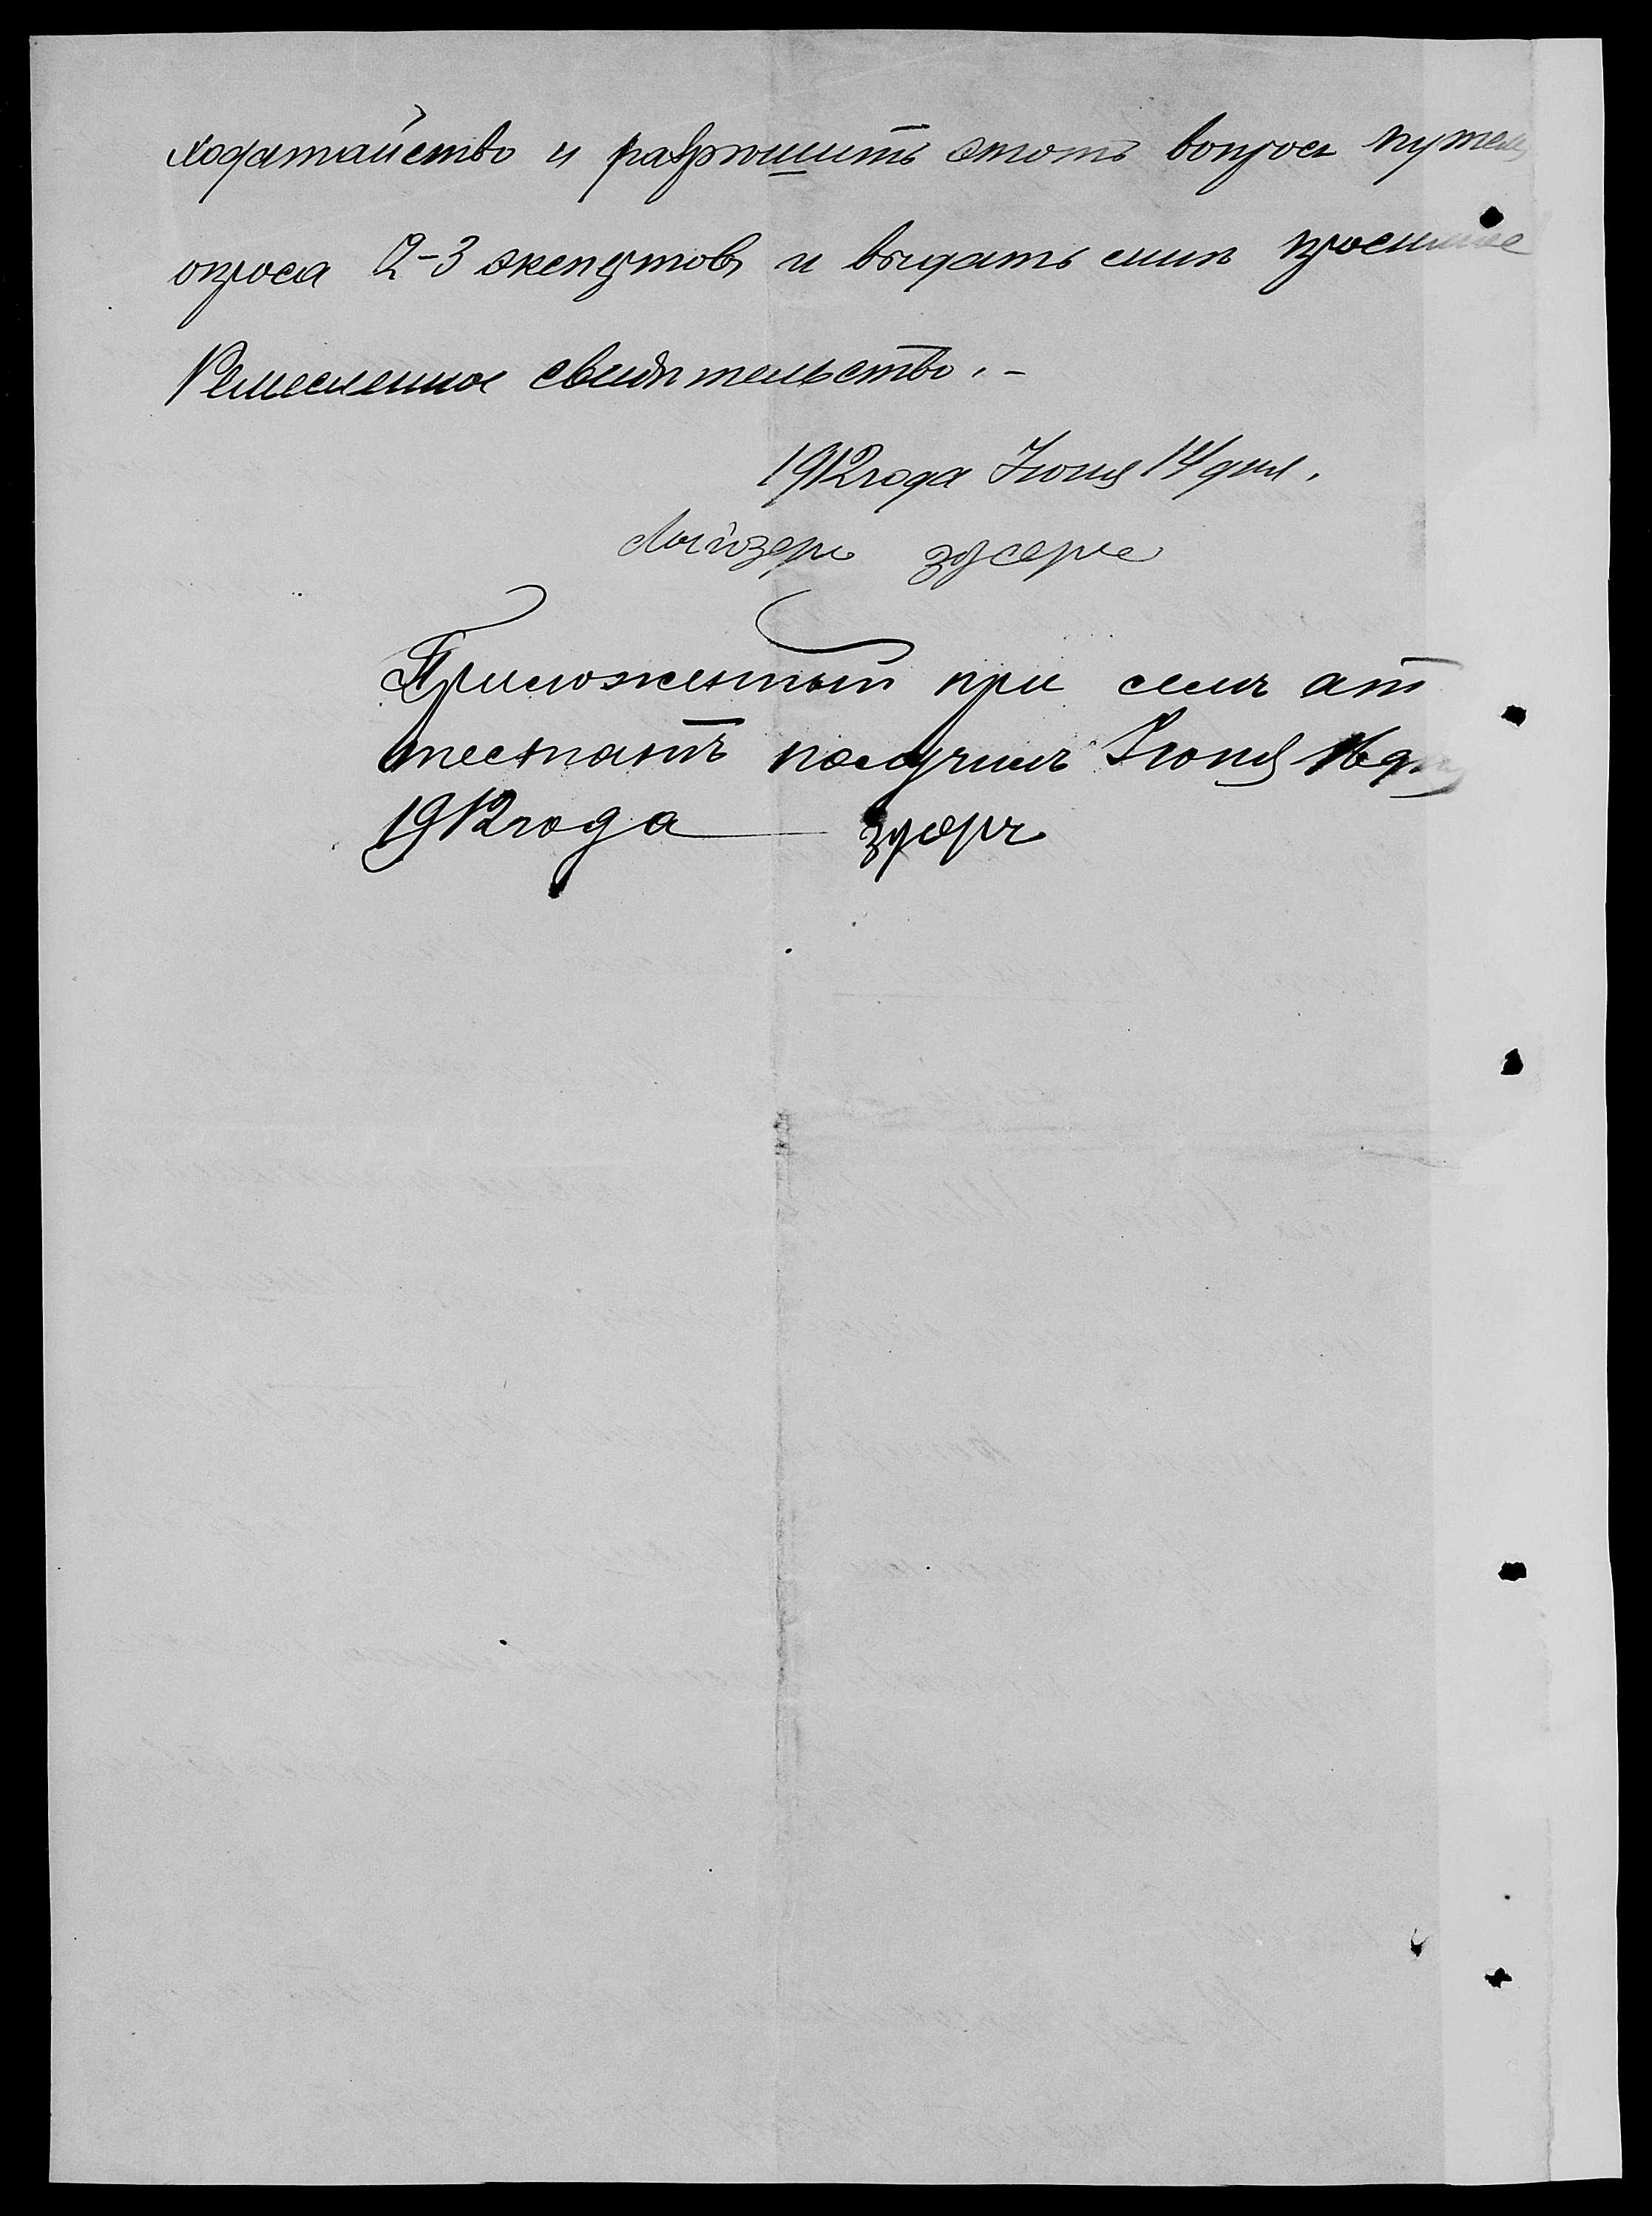 ходатайство и разрѣшить этотъ вопросъ путемъ
опроса 2-3 экспертовъ и выдать мнѣ просимое
Ремесленное свидѣтельство. -
1912 года Іюня 14 дня.
Лейзеръ Зусеръ
Приложенный при семъ ат
тестатъ получилъ Іюня 16 дня
1912 года Зусеръ